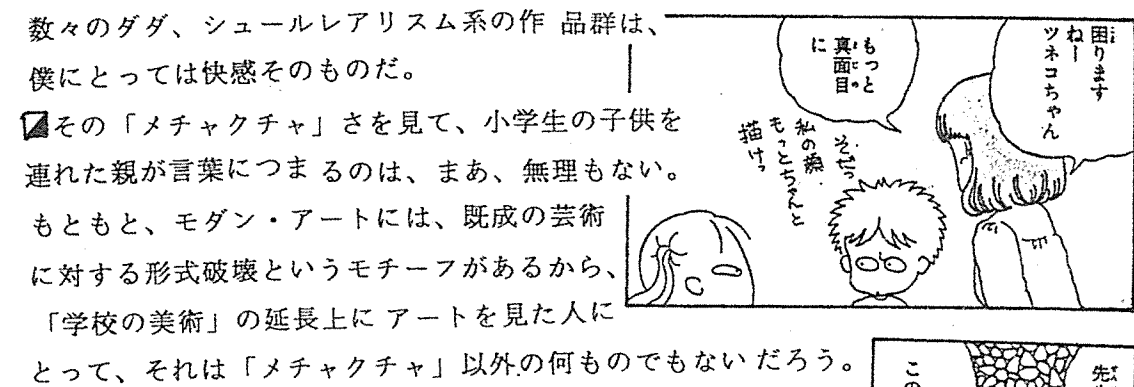 数々のダダ、シュールレアリスム系の作 品群は、
僕にとっては快感そのものだ。
その「メチャクチャ」さを見て、小学生の子供を
連れた親が言葉につま るのは、まあ、無理もない。
もともと、モダン・アートには、既成の芸術
に対する形式破壊というモチーフがあるから、
「学校の美術」の延長上に アートを見た人に
とって、それは「メチャクチャ」以外の何ものでもない だろう。
困ります
ねー
ツネコちゃん
もっと
真面目
に
そだっ
私の顔
もっとちゃんと
描けっ
先
この